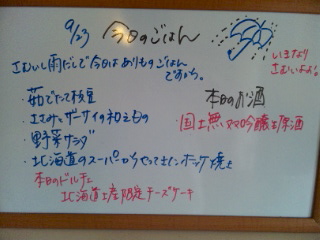 9/23 今日のごはん
さむいし雨だしで今日はありものごはん
ですよっ。
いきなり
さむいよぉ!
・茹でたて枝豆
・ザーサイの和えもの
・野菜サラダ
・北海道のスーパーからやってきたホッケ焼き
本日のドルチェ
北海道土産限定チーズケーキ
本日のお酒
・国士無 吟醸生原酒